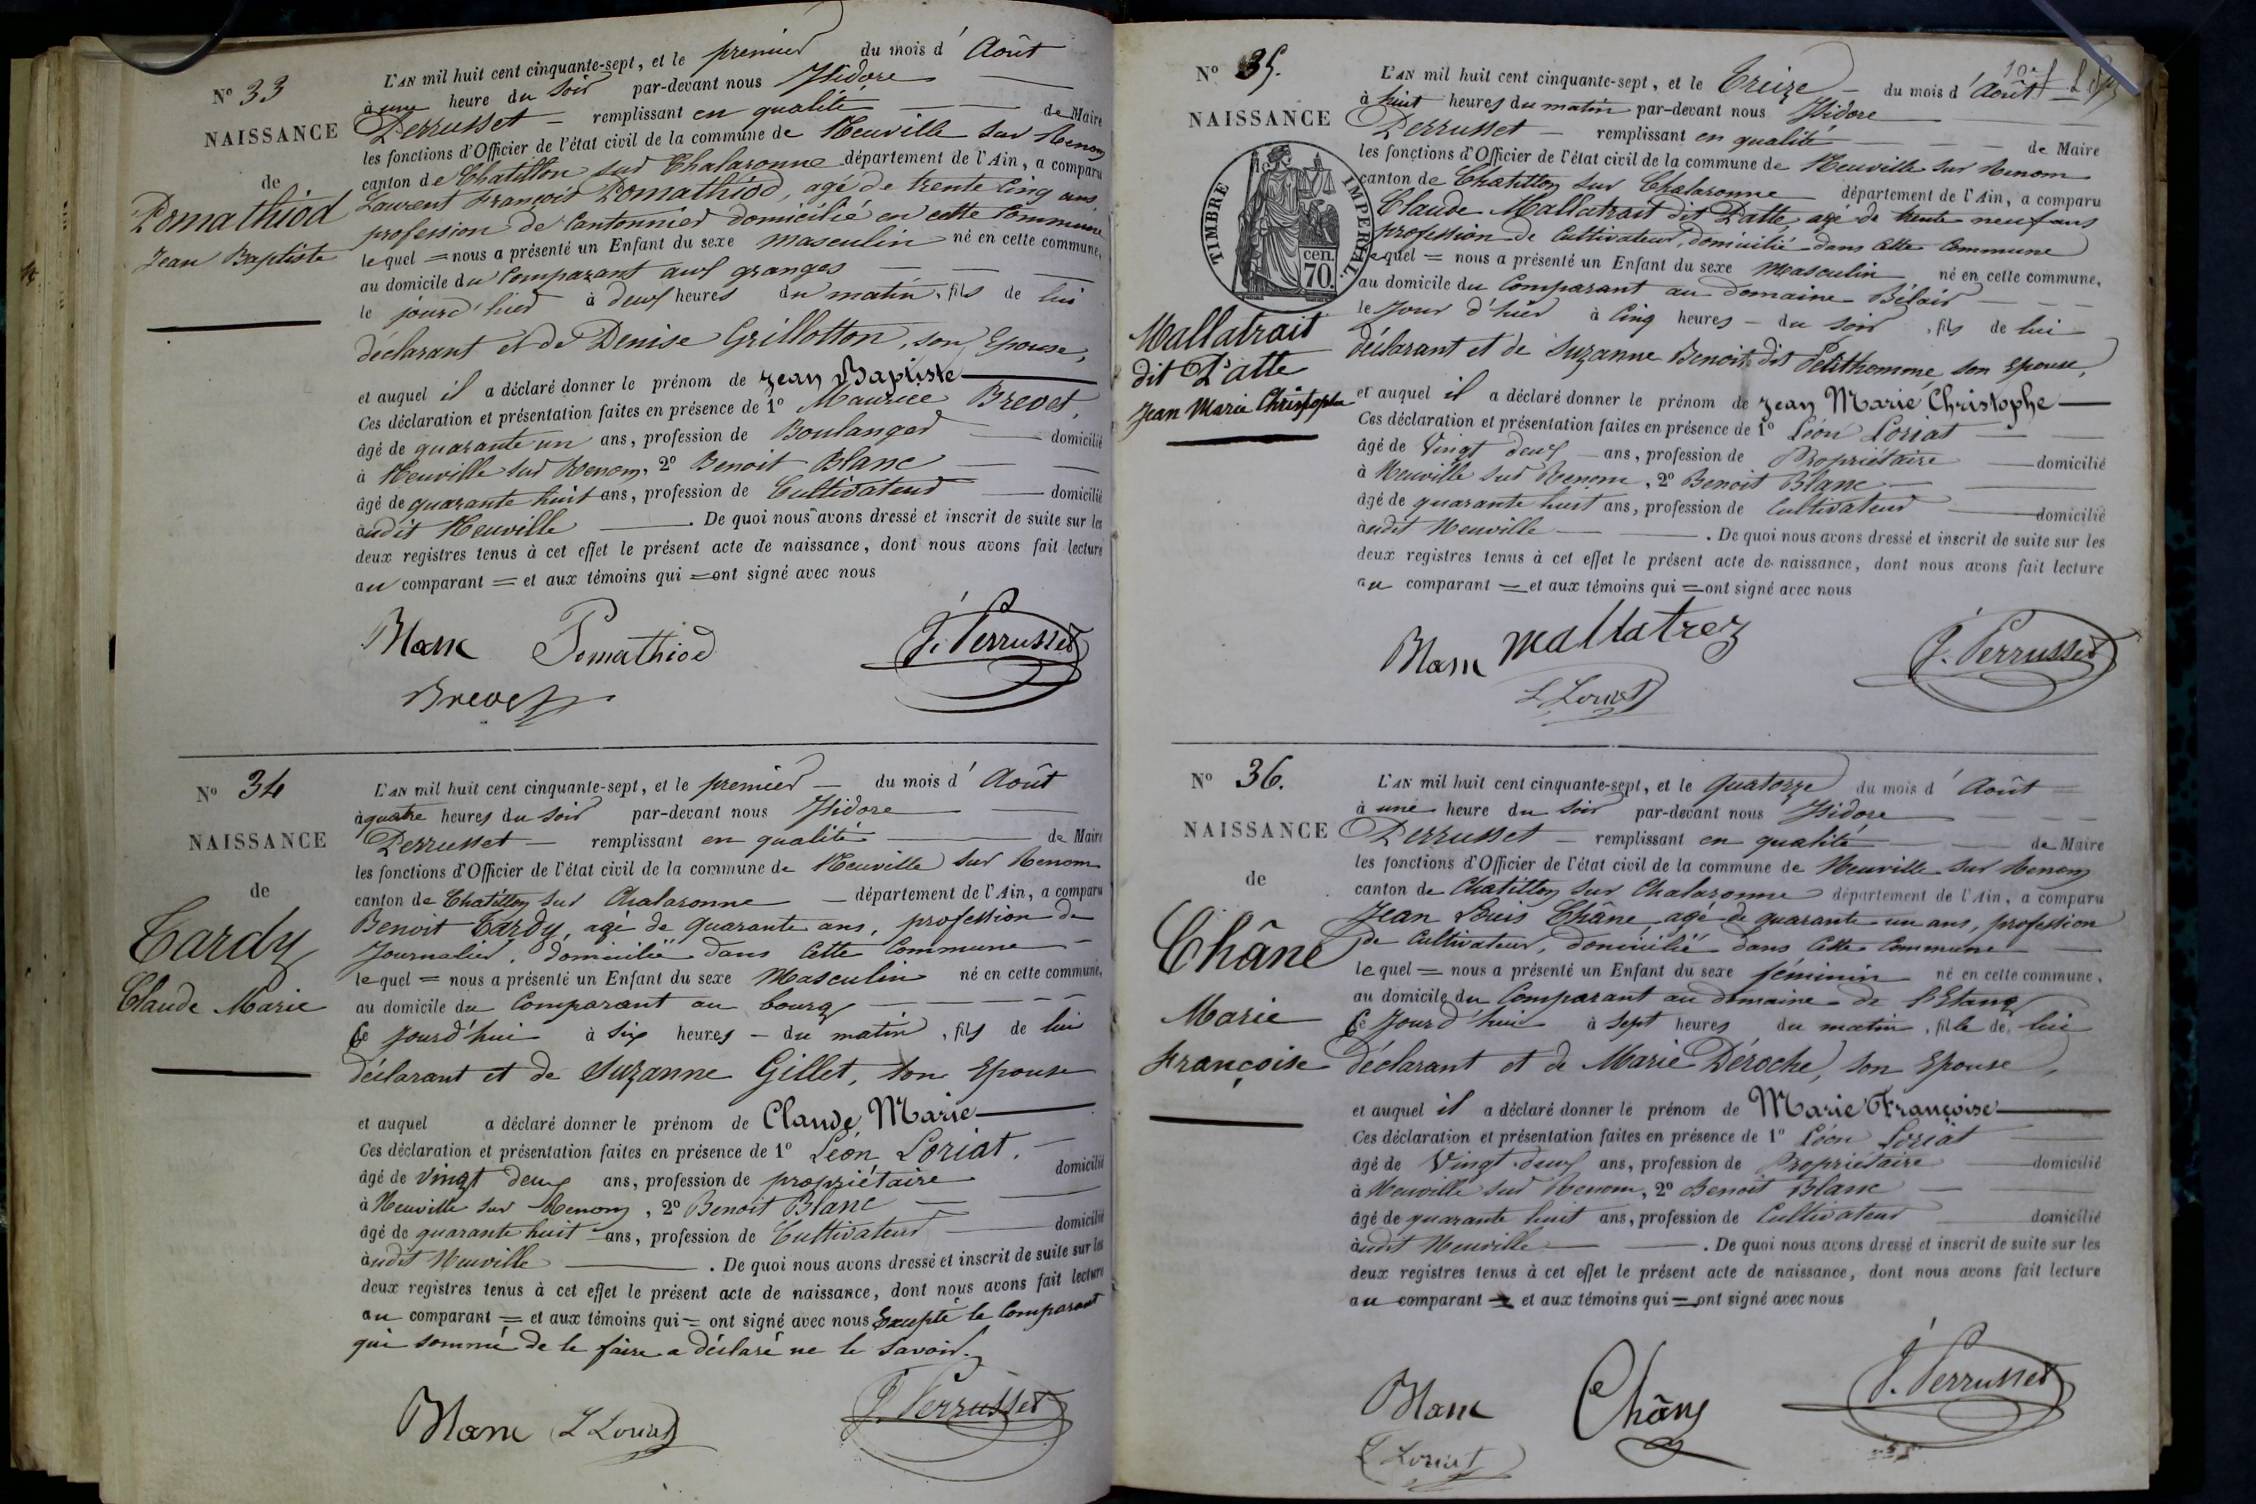 N° 33
NAISSANCE
de
Pomathiod
Jean Baptiste
L'AN mil huit cent cinquante-sept, et le premier du mois d' Août
à une heure du soir par-devant nous Isidore
Perrusset remplissant en qualité de Maire
les fonctions d'Officier de l'état civil de la commune de Neuville sur Renom
canton de Chatillon sur Chalaronne département de l'Ain, a comparu
Laurent François Pomathiod, agé de trente cinq ans,
profession de Cantonnier domicilié en cette Commune
lequel = nous a présenté un Enfant du sexe masculin né en cette commune,
au domicile du Comparant aux granges
le jourd'hier à deux heures du matin, fils de lui
déclarant et de Denise Grillotton, son Epouse,
et auquel il a déclaré donner le prénom de Jean Baptiste
Ces déclaration et présentation faites en présence de 1° Maurice Brevet,
âgé de quarante un ans, profession de Boulanger domicilié
à Neuville sur Renom, 2° Benoit Blanc
âgé de quarante huit ans, profession de Cultivateur domicilié
audit Neuville . De quoi nous avons dressé et inscrit de suite sur les
deux registres tenus à cet effet le présent acte de naissance, dont nous avons fait lecture
au comparant = et aux témoins qui = ont signé avec nous
Blanc Pomathiod J. Perrusset
Brevet
N° 34
NAISSANCE
de
Tardy
Claude Marie
L'AN mil huit cent cinquante-sept, et le premier du mois d' Août
à quatre heures du soir par-devant nous Isidore
Perrusset remplissant en qualité de Maire
les fonctions d'Officier de l'état civil de la commune de Neuville sur Renom
canton de Chatillon sur Chalaronne département de l'Ain, a comparu
Benoit Tardy, agé de quarante ans, profession de
Journalier, domicilié dans cette Commune
lequel = nous a présenté un Enfant du sexe Masculin né en cette commune,
au domicile du Comparant au bourg
Ce jourd'hui à six heures du matin, fils de lui
déclarant et de Suzanne Gillet, son Epouse
et auquel a déclaré donner le prénom de Claude Marie
Ces déclaration et présentation faites en présence de 1° Léon Loriat.
âgé de vingt deux ans, profession de propriétaire domicilié
à Neuville sur Renom, 2° Benoit Blanc
âgé de quarante huit ans, profession de Cultivateur domicilié
audit Neuville . De quoi nous avons dressé et inscrit de suite sur les
deux registres tenus à cet effet le présent acte de naissance, dont nous avons fait lecture
au comparant = et aux témoins qui = ont signé avec nous Excepté le Comparant
qui sommé de le faire a déclaré ne le savoir.
Blanc L Loriat J. Perrusset
N° 35.
NAISSANCE
TIMBRE IMPERIAL.
cen.
70.
Mallatrait
dit Patte
Jean Marie Christophe
L'AN mil huit cent cinquante-sept, et le Treize du mois d' Août
à huit heures du matin par-devant nous Isidore
Perrusset remplissant en qualité de Maire
les fonctions d'Officier de l'état civil de la commune de Neuville sur Renom
canton de Chatillon sur Chalaronne département de l'Ain, a comparu
Claude Mallatrait dit Patte, agé de trente neuf ans
profession de Cultivateur, domicilié dans cette Commune
lequel = nous a présenté un Enfant du sexe Masculin né en cette commune,
au domicile du Comparant au domaine Bélair
le jour d'hier à Cinq heures du soir, fils de lui
déclarant et de Suzanne Benoit dit Petithomme, son Epouse,
et auquel il a déclaré donner le prénom de Jean Marie Christophe
Ces déclaration et présentation faites en présence de 1° Léon Loriat
âgé de Vingt deux ans, profession de Propriétaire domicilié
à Neuville sur Renom, 2° Benoit Blanc
âgé de quarante huit ans, profession de Cultivateur domicilié
audit Neuville . De quoi nous avons dressé et inscrit de suite sur les
deux registres tenus à cet effet le présent acte de naissance, dont nous avons fait lecture
au comparant = et aux témoins qui = ont signé avec nous
Blanc Mallatrez J. Perrusset
L Loriat
N° 36.
NAISSANCE
de
Châne
Marie
Françoise
L'AN mil huit cent cinquante-sept, et le Quatorze du mois d' Août
à une heure du soir par-devant nous Isidore
Perrusset remplissant en qualité de Maire
les fonctions d'Officier de l'état civil de la commune de Neuville sur Renom
canton de Chatillon sur Chalaronne département de l'Ain, a comparu
Jean Louis Châne, agé de quarante un ans, profession
de Cultivateur, domicilié dans cette Commune
lequel = nous a présenté un Enfant du sexe féminin né en cette commune,
au domicile du Comparant au domaine de l'Etang
Ce jourd'hui à sept heures du matin, fille de lui
déclarant et de Marie Déroche, son Epouse,
et auquel il a déclaré donner le prénom de Marie Françoise
Ces déclaration et présentation faites en présence de 1° Léon Loriat
âgé de Vingt deux ans, profession de Propriétaire domicilié
à Neuville sur Renom, 2° Benoit Blanc
âgé de quarante huit ans, profession de Cultivateur domicilié
audit Neuville . De quoi nous avons dressé et inscrit de suite sur les
deux registres tenus à cet effet le présent acte de naissance, dont nous avons fait lecture
au comparant = et aux témoins qui = ont signé avec nous
Blanc Châne J. Perrusset
L Loriat